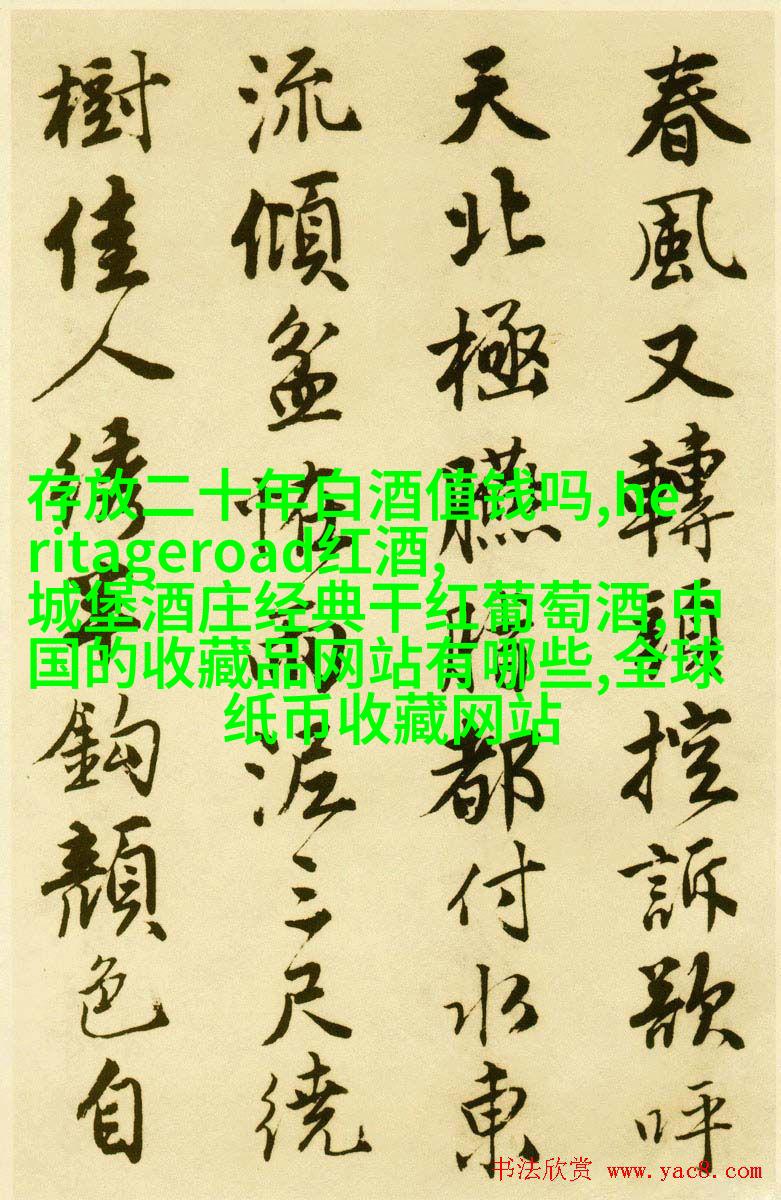 春風又轉控訴呼
天北極臙脂都付水東
流傾盆怪雨泥三尺繞
樹佳人綉鈎顏色自
存放二十年白酒值钱吗,he
ritageroad红酒,
城堡酒庄经典干红葡萄酒,中
国的收藏品网站有哪些,全球
纸币收藏网站
书法欣赏 www.yac8.com